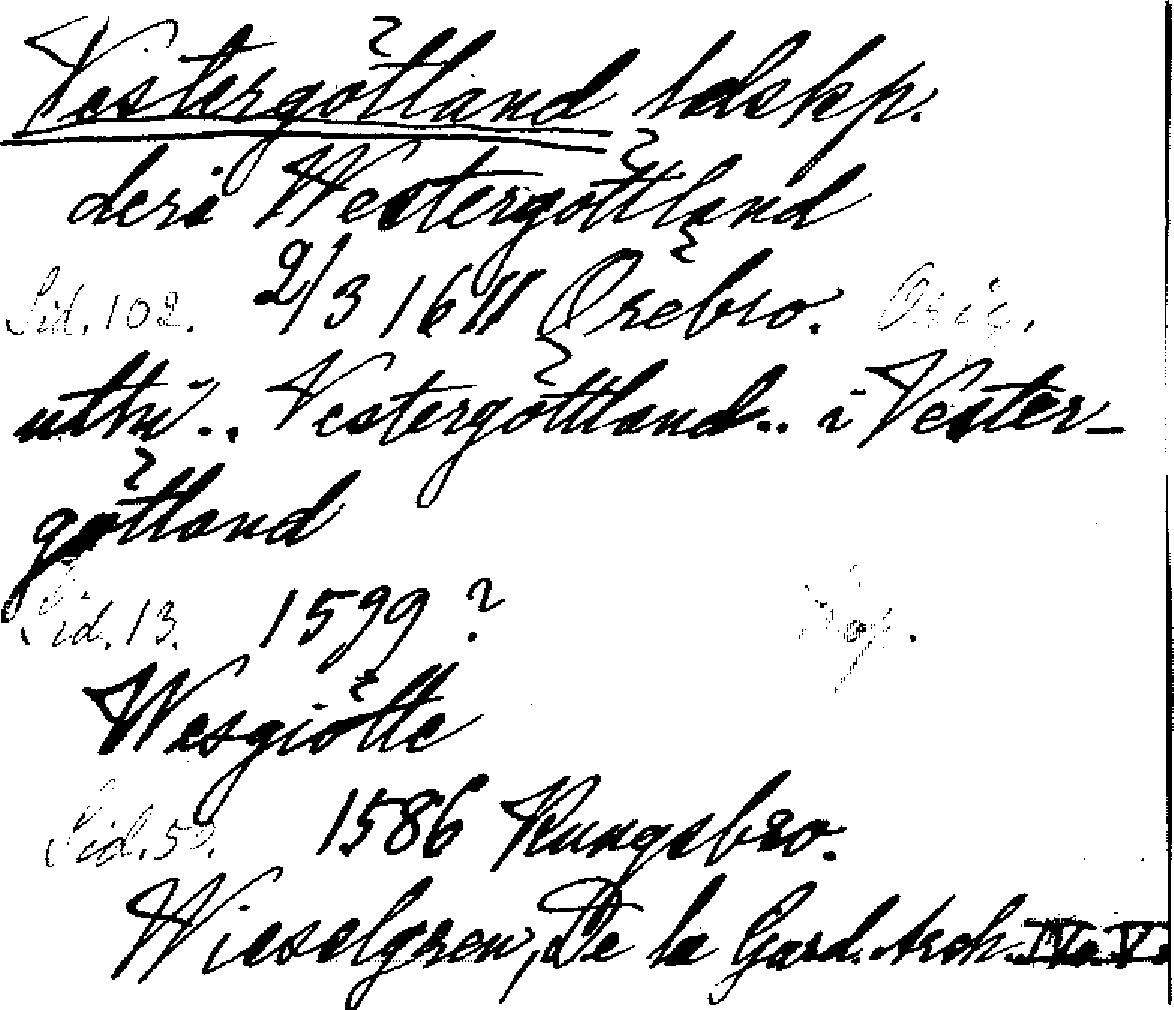 Vestergötland ldskp.
deri Westergöttland
Sid. 102. 2/3 1611 Örebro. Orig.
uthi.. Vestergöttland.. i Vester-
götland
Sid. 13. 1599? Kop.
Wesgiötte
Sid. 1586 Kungsbro.
Wieselgren, De la Gard. Arch.